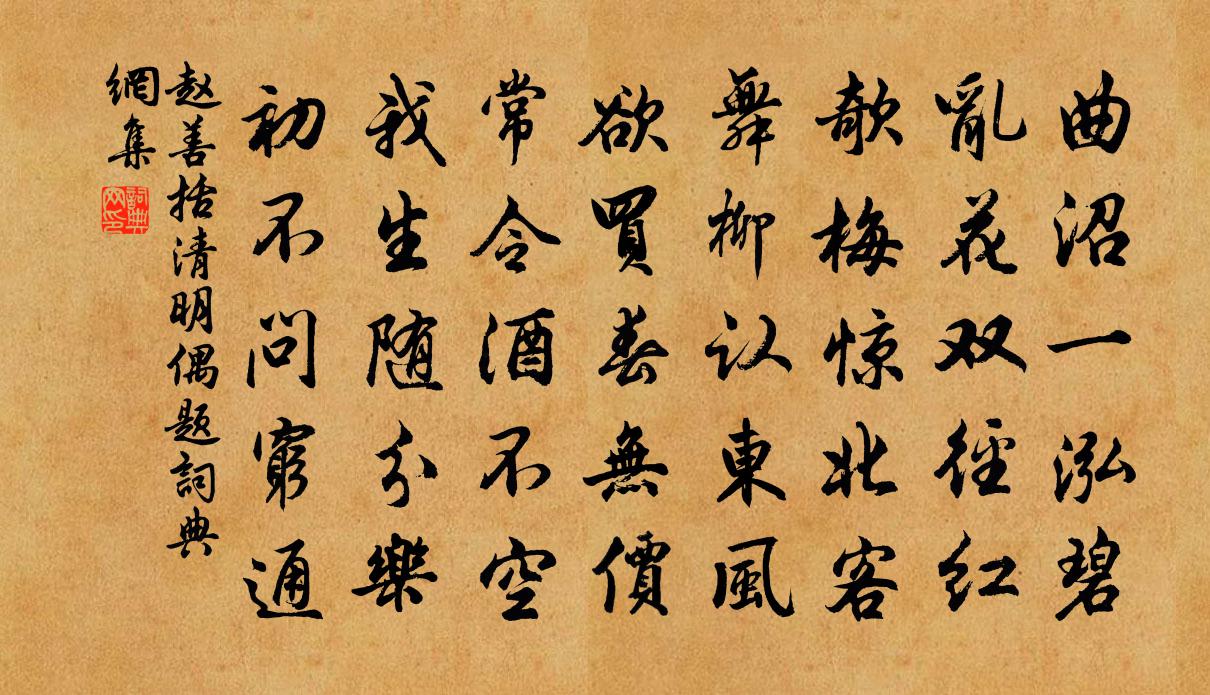 曲沼一泓碧
亂花双徑红
欹梅惊北客
舞柳认東風
欲買春無價
常令酒不空
我生随分樂
初不问窮通
赵善括清明偶题詞典
網集
詞典网印